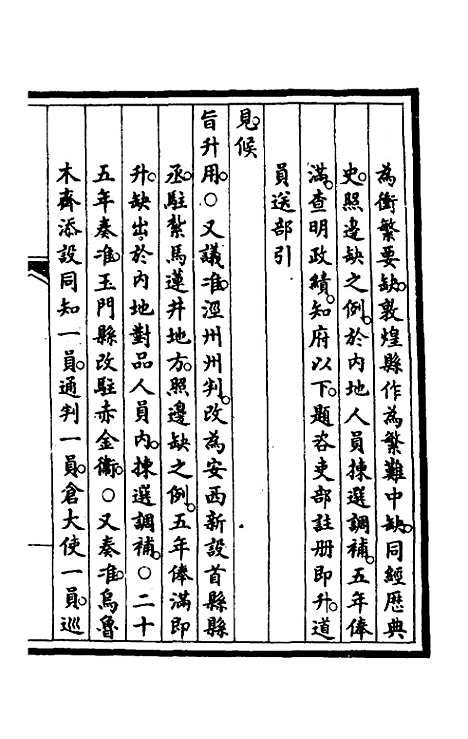 為衝繁要缺。敦煌縣作為繁難中缺。同經歴典
史。照邊缺之例。於內地人員揀選調補。五年俸
滿。查明政績。知府以下。題咨吏部註册即升。道
員送部引
見。候
旨升用。○又議准。涇州州判。改為安西新設首縣縣
丞。駐紮馬蓮井地方。照邊缺之例。五年俸滿即
升。缺出。於內地對品人員內。揀選調補。○二十
五年奏准。玉門縣改駐赤金衞。○又奏准。烏魯
木齊添設同知一員。通判一員。倉大使一員。巡